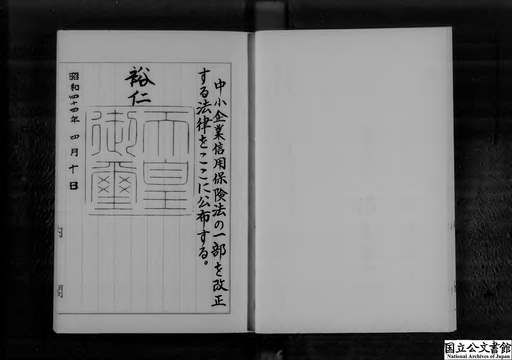 中小企業信用保険法の一部を改正
する法律をここに公布する。
裕仁
天皇
御璽
昭和四十四年四月十日
国立公文書館
National Archives of Japan